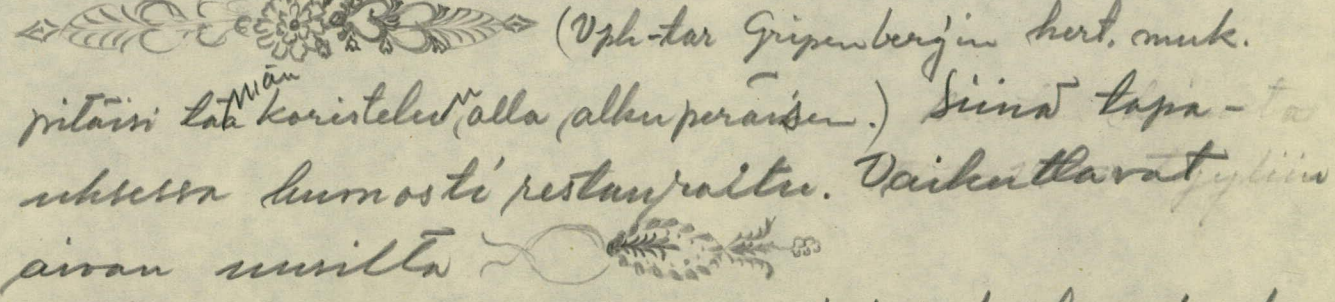 (Vph-tar Gripenberg'in kert. muk.
pitäisi tämän koristelun olla alkuperäisen.) Siinä tapa-
uksessa huonosti restauroitu. Vaikuttavat
aivan uusilta